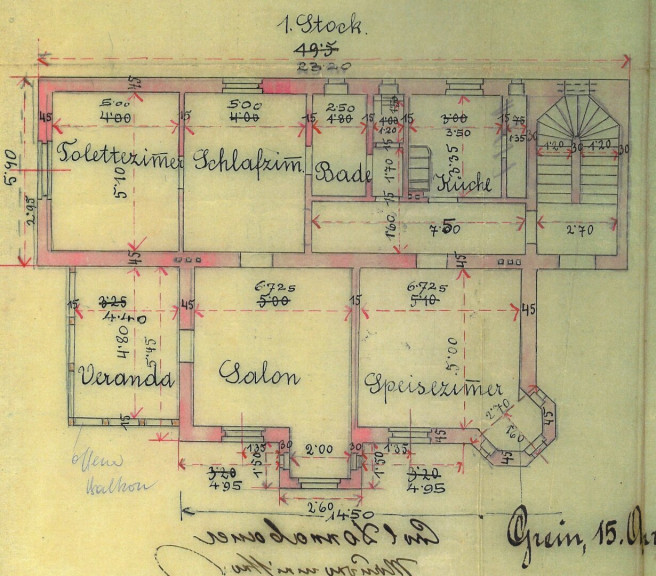 1. Stock.
49·5
23·20
45
5·00
4·00
5·00
4·00
2·50
4·80
4·00
1·20
3·00
3·50
75
1·35
45
15
15
15
15
30
Tolettezimer
Schlafzim.
Bade
Küche
5·10
1·70
3·35
1·20
30
1·20
30
5·90
2·95
15
1·60
7·50
2·70
45
45
6·725
5·00
6·725
5·40
15
3·25
4·40
45
15
45
4·80
5·45
5·00
Veranda
Salon
Speisezimer
2·70
1·60
45
45
15
offene
Balkon
1·35
30
2·00
30
1·35
45
3·20
4·95
1·50
1·50
3·20
4·95
2·60
14·50
Grein, 15.